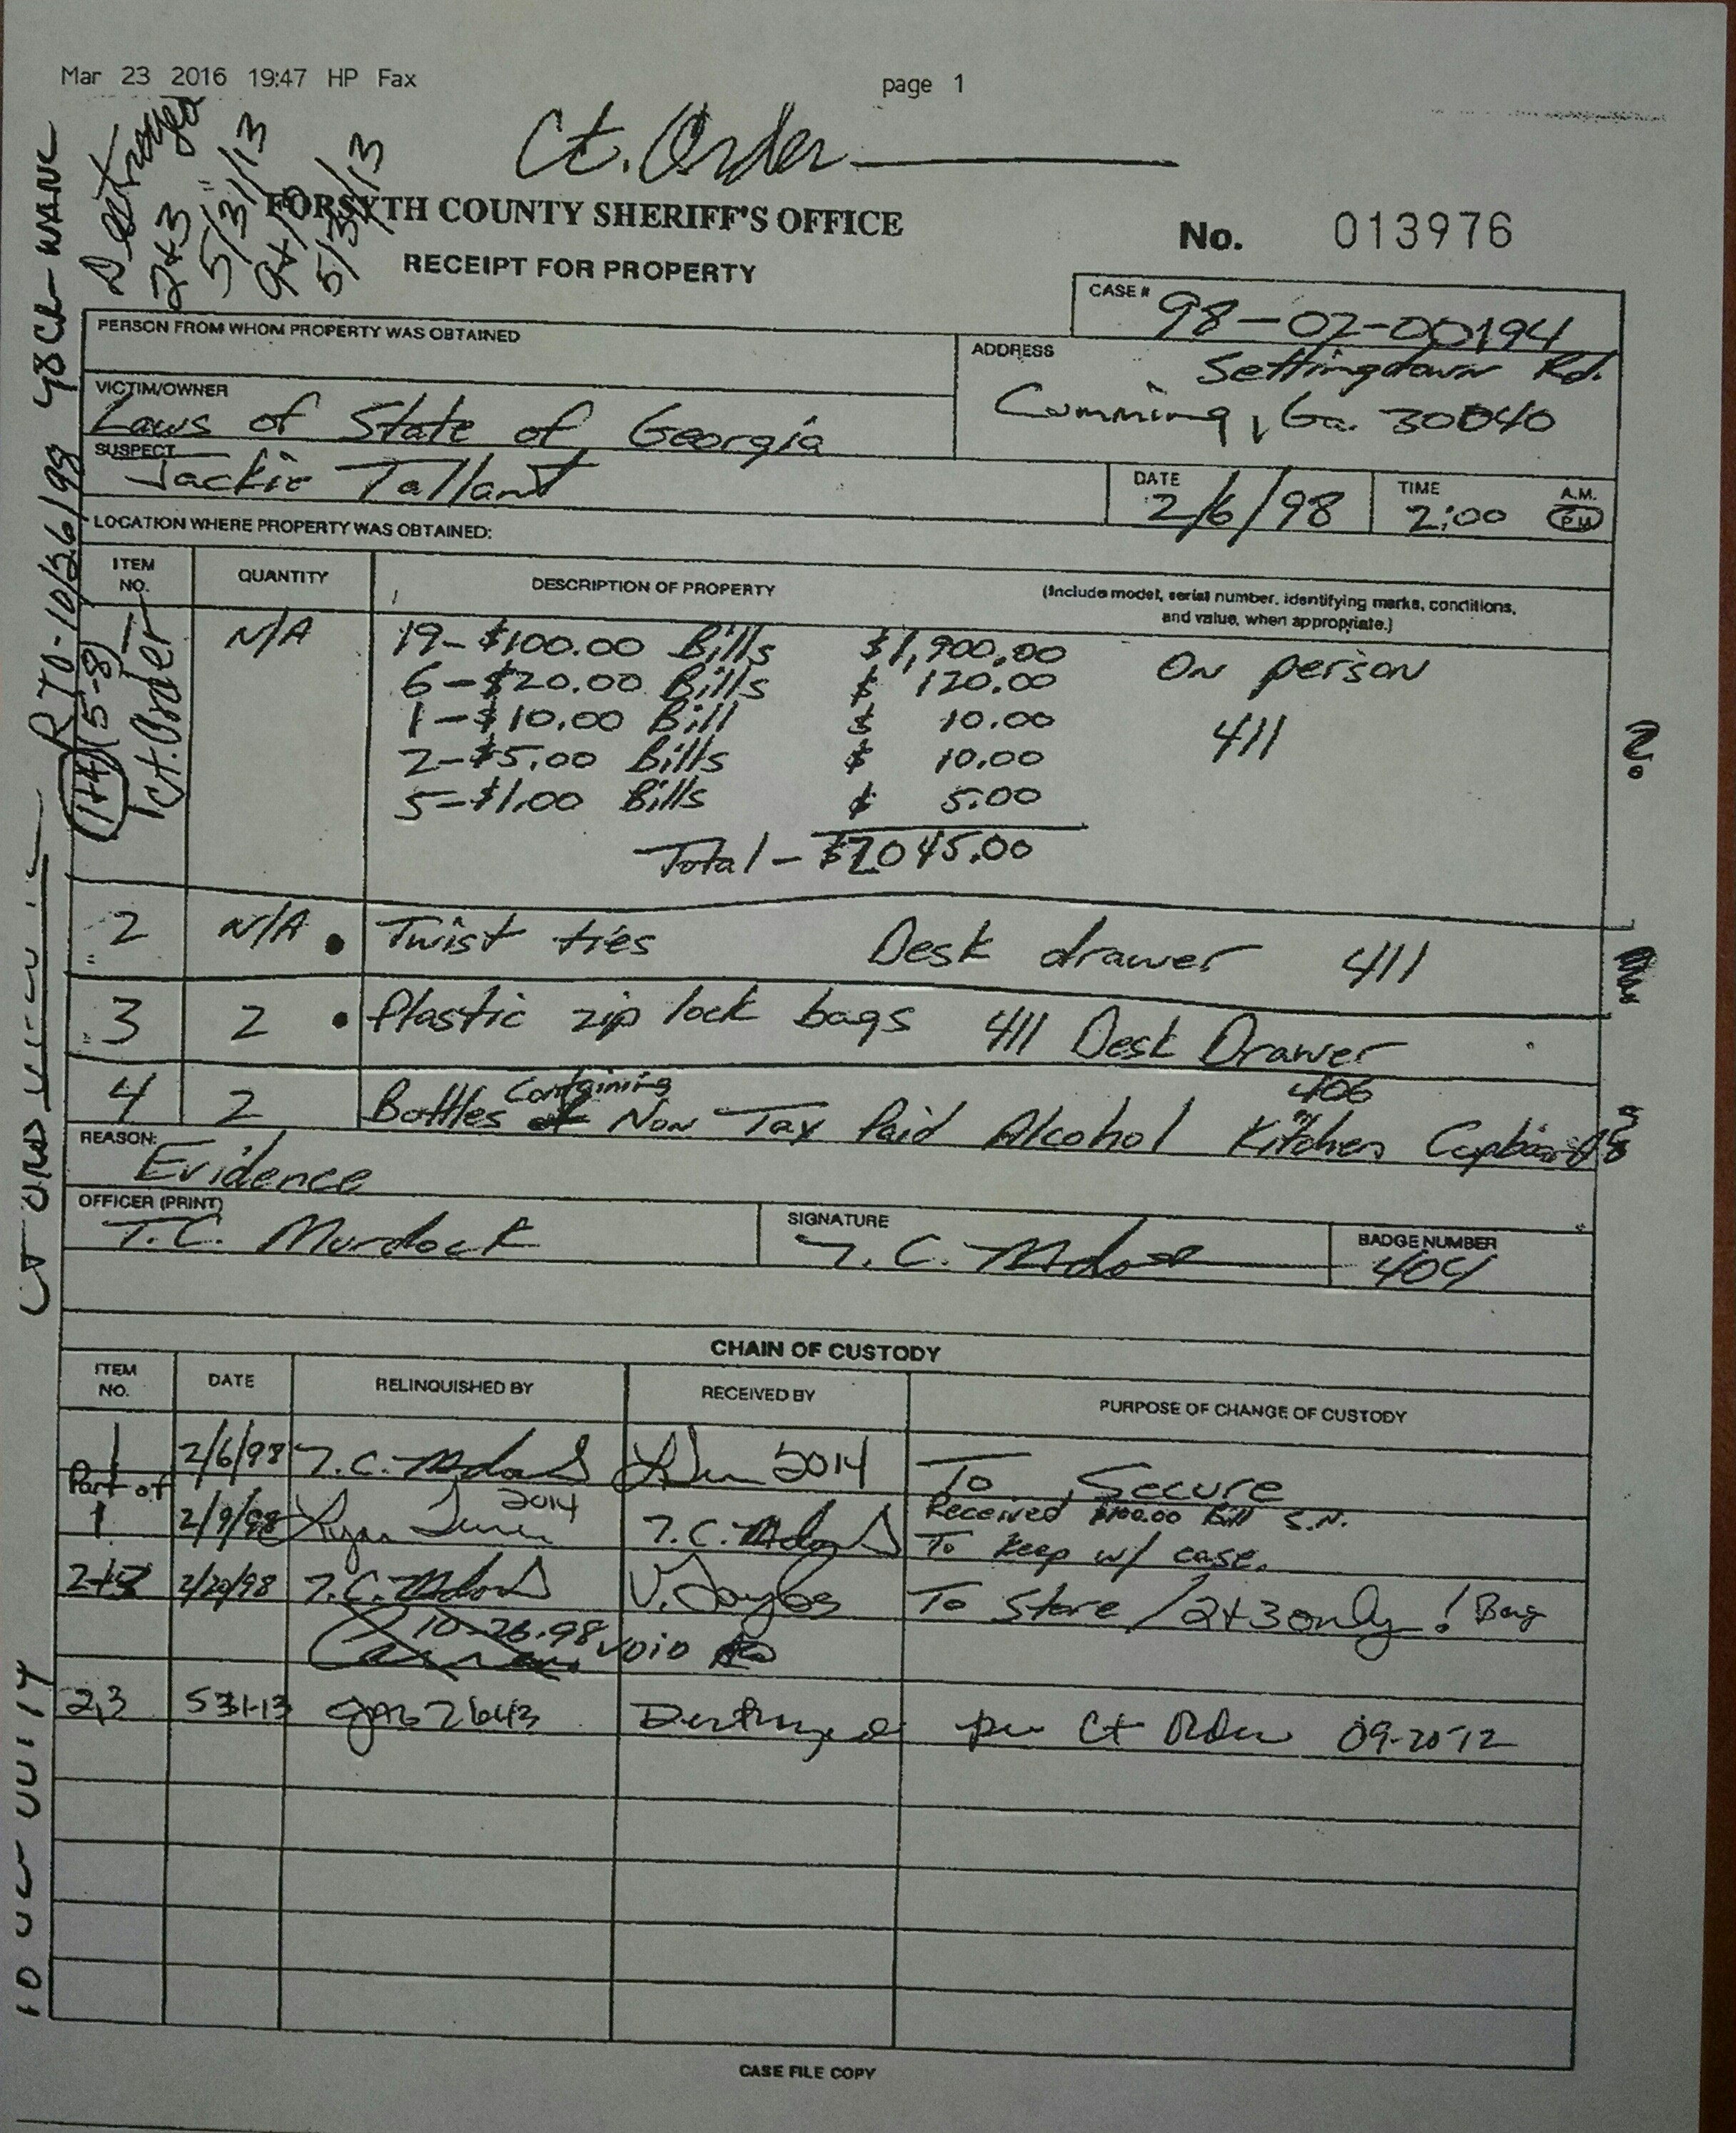 Mar 23 2016 19:47 HP Fax page 1
Ct. Order
Destroyed
2+3
5/31/13
5/31/13
FORSYTH COUNTY SHERIFF'S OFFICE
No. 013976
RECEIPT FOR PROPERTY
CASE # 98-02-00194
PERSON FROM WHOM PROPERTY WAS OBTAINED
ADDRESS Settingdown Rd.
Cumming, Ga. 30040
VICTIM/OWNER
Laws of State of Georgia
SUSPECT
Jackie Tallant
DATE 2/6/98
TIME 2:00 A.M. PM
LOCATION WHERE PROPERTY WAS OBTAINED:
ITEM NO. QUANTITY DESCRIPTION OF PROPERTY (Include model, serial number, identifying marks, conditions,
and value, when appropriate.)
N/A 19-$100.00 Bills $1,900.00 On person
6-$20.00 Bills $ 120.00
1-$10.00 Bill $ 10.00 411
2-$5.00 Bills $ 10.00
5-$1.00 Bills $ 5.00
Total - $2045.00
2 N/A Twist ties Desk drawer 411
3 2 Plastic zip lock bags 411 Desk Drawer
4 2 Bottles Containing Non Tax Paid Alcohol 406 Kitchen
REASON:
Evidence
OFFICER (PRINT)
T.C. Murdock
SIGNATURE
BADGE NUMBER
404
CHAIN OF CUSTODY
ITEM NO. DATE RELINQUISHED BY RECEIVED BY PURPOSE OF CHANGE OF CUSTODY
1 2/6/98 2014 To Secure
Part of
1 2/9/98 2014 Received $100.00 Bill S.N.
To keep w/ case.
2+3 2/20/98 To Store / 2+3 only!
10-26-98 VOID
2,3 53113 Destroyed per Ct Order 09-20-12
CASE FILE COPY
(1+4) (5-8)
Ct. Order
RTO-10/26/98
?